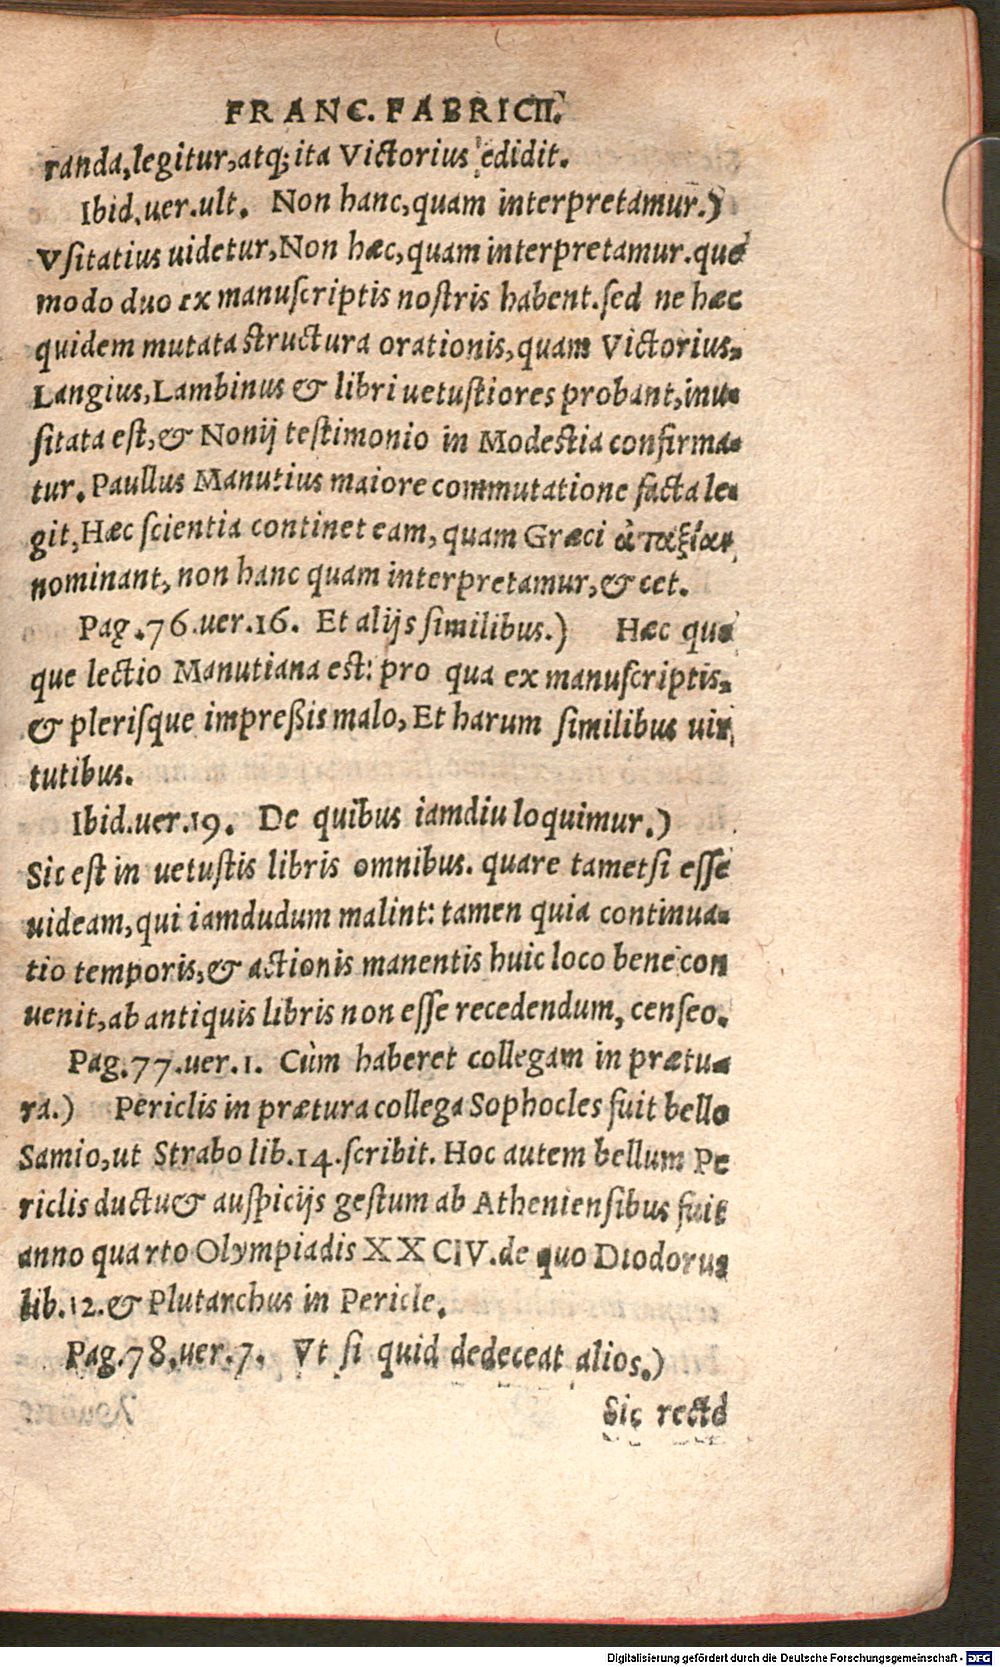 FRANC. FABRICII.
randa, legitur, atq; ita Victorius edidit.
Ibid. uer. ult. Non hanc, quam interpretamur.)
Vsitatius uidetur, Non hæc, quam interpretamur. quo
modo duo ex manuscriptis nostris habent. sed ne hæc
quidem mutata structura orationis, quam Victorius,
Langius, Lambinus & libri uetustiores probant, inu-
sitata est, & Nonij testimonio in Modestia confirma-
tur. Paullus Manutius maiore commutatione facta le-
git, Hæc scientia continet eam, quam Græci ἀταξίαν
nominant, non hanc quam interpretamur, & cet.
Pag. 76. uer. 16. Et alijs similibus.) Hæc quo
que lectio Manutiana est: pro qua ex manuscriptis,
& plerisque impreßis malo, Et harum similibus uir
tutibus.
Ibid. uer. 19. De quibus iamdiu loquimur.)
Sic est in uetustis libris omnibus. quare tametsi esse
uideam, qui iamdudum malint: tamen quia continua-
tio temporis, & actionis manentis huic loco bene con
uenit, ab antiquis libris non esse recedendum, censeo.
Pag. 77. uer. 1. Cùm haberet collegam in prætu-
ra.) Periclis in prætura collega Sophocles fuit bello
Samio, ut Strabo lib. 14. scribit. Hoc autem bellum Pe
riclis ductu & auspicijs gestum ab Atheniensibus fuit
anno quarto Olympiadis XXCIV. de quo Diodorus
lib. 12. & Plutarchus in Pericle.
Pag. 78. uer. 7. Vt si quid dedeceat alios.)
Sic rectè
Digitalisierung gefördert durch die Deutsche Forschungsgemeinschaft - DFG